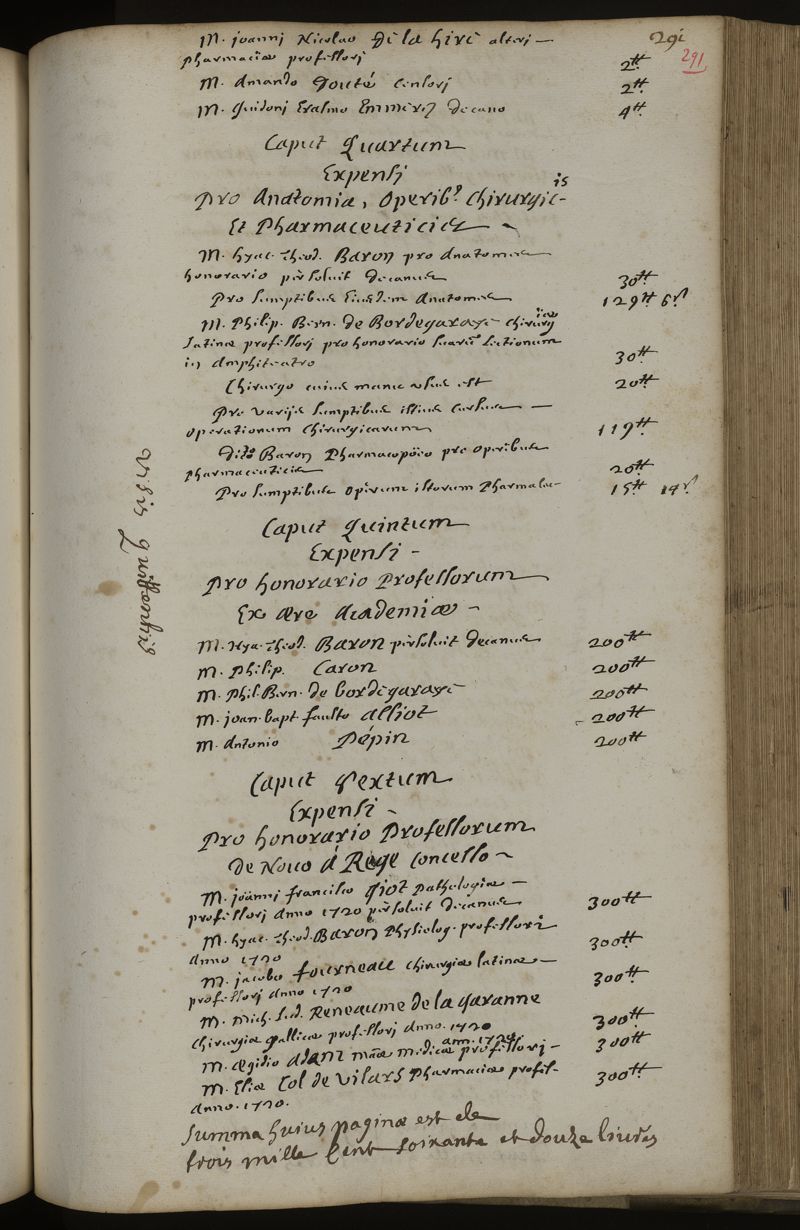 291
291
M. joanni Nicolao De la hire alteri —
pharmaciæ professori 2tt
M. Amando Douté Censori 2tt
M. Guidoni Erasmo Emmerez decano 4tt
Caput Quartum
Expensi
Pro Anatomia, Operib9 Chirurgic-is
Et Pharmaceuticis
M. hyac. Theod. Baron pro Anatomes
honorario persoluit Decanus 30tt
Pro sumptibus Eiusdem Anatomes 129tt 6s
M. Philip. Bern. de Bordegaraye chirurgiæ
latinæ professori pro honorario suarū Lectionum
in Amphiteatro 30tt
Chirurgo cuius manu usus est 20tt
Pro varijs sumptibus istius cursus —
operationum Chirurgicarum 119tt
Dicto Baron Pharmacopœo pro operibus
pharmaceuticis 20tt
Pro sumptibus operum istorum Pharmaceu- 15tt 14s
Caput Quintum
Expensi -
Pro honorario Professorum
Ex ære Academiæ -
M. Hya. Theod. Baron persoluit decanus 200tt
M. Philip. Caron 200tt
M. Phil. Bern. de bordegaraye 200tt
M. joan. bapt. fausto Alliot 200tt
M. Antonio Pépin 200tt
Caput Sextum
Expensi -
Pro honorario Professorum
de Nouo á Rege Concesso -
M. joanni francisco Giot pathologiæ —
professori anno 1720 persoluit Decanus 300tt
M. hyac. Theod. Baron Physiolog. professori
anno 1720 300tt
M. jacobo fourneau chirurgiæ latinæ —
professori anno 1720 300tt
M. Mich. Lud. Reneaume de la Garanne
chirurgiæ gallicæ professori anno. 1720 300tt
M. ægidio Adam maæ medicæ professori - ann. 1720 300tt
M. Eliæ Col de vilars Pharmaciæ profes-
anno. 1720. 300tt
Summa huius paginæ est de
trois mille Cent soixante et douze liures